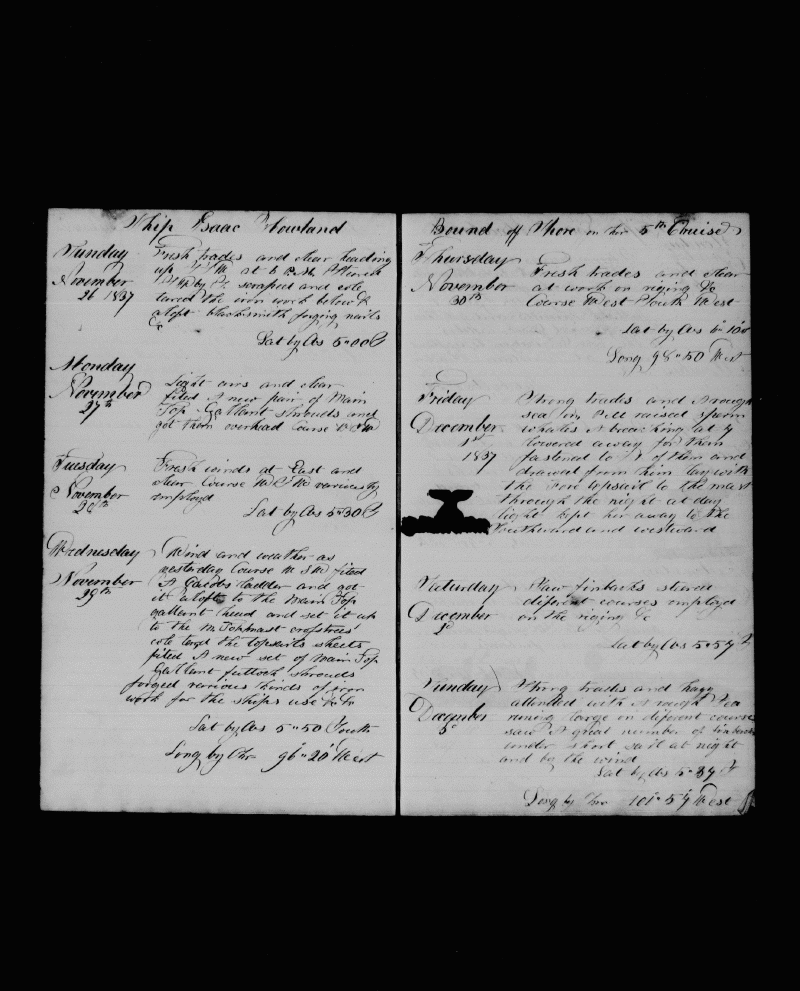 Ship Isaac Howland
Sunday
November
26 1837
Fresh trades and clear heading
up at 6
scraped and cole
tared the iron work below &
aloft blacksmith forging nails
&c
Lat by Obs 5"00 S
Monday
November
27th
Light airs and clear
fited A new pair of Main
Top Gallant shrouds and
got them overhead Course
Tuesday
November
28th
Fresh winds at East and
clear Course W S W variously
employd
Lat by Obs 5"30 S
Wednesday
November
29th
Wind and weather as
yesterday Course W S W fited
A Jacobs ladder and got
it aloft to the Main Top
gallant head and set it up
to the M. Topmast crosstrees
cole tard the topsails sheets
fited A new set of Main Top
Gallant futtock shrouds
forged various kinds of iron
work for the ships use &c
Lat by Obs 5"50 South
Long by Chr 96"20' West
Bound off Shore on her 5th Cruise
Thursday
November
30th
Fresh trades and clear
at work on riging &c
Course West South West
Lat by Obs 6" 10
Long 98"50 West
Friday
December
1st
1837
Strong trades and A rough
sea raised sperm
whales A breaching at
lowered away for them
fastened to of them and
drawed from him lay with
the Fore topsail to the mast
through the night at day
light kept her away to the
Southward and westward
Saturday
December
Saw finbacks steerd
diferent courses employd
on the riging &c
Lat by Obs 5"57 S
Sunday
December
3d
Strong trades and hazy
attended with A rough Sea
runing large on diferent courses
saw A great number of finbacks
under short sail at night
and by the wind
Lat by Obs 5"
Long by Chr 101"57 West